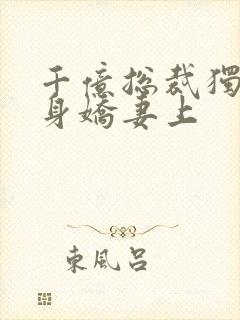 千億总裁獨
身嬌妻上
東風呂